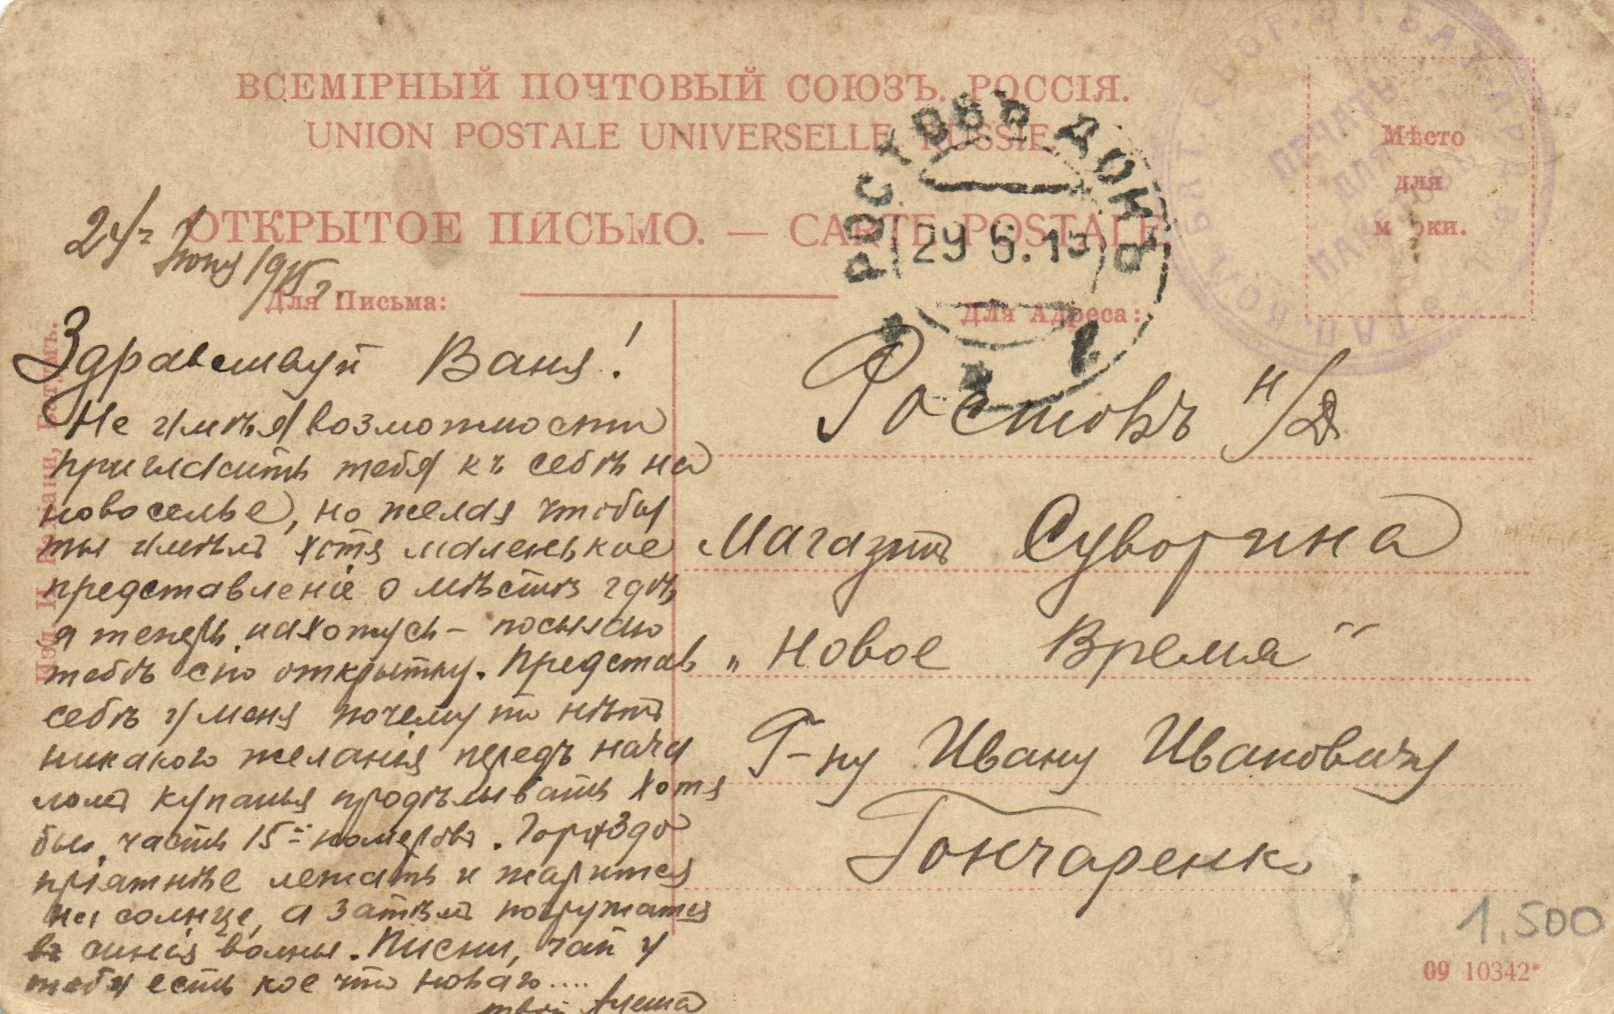 ВСЕМІРНЫЙ ПОЧТОВЫЙ СОЮЗЪ. РОССІЯ.
UNION POSTALE UNIVERSELLE. RUSSIE.
ОТКРЫТОЕ ПИСЬМО. — CARTE POSTALE
Мѣсто
для
марки.
ПЕЧАТЬ
ДЛЯ
ПАКЕТОВЪ
РОСТОВЪ ДОН
29 6. 15
24 Іюня 1915 г.
Для Письма:
Для Адреса:
Здравствуй Ваня!
Не имѣя возможности
пригласить тебя къ себѣ на
новоселье, но желая чтобы
ты имѣлъ хотя маленькое
представленіе о мѣстѣ гдѣ
я теперь нахожусь – посылаю
тебѣ сію открытку. Представ
себѣ у меня почему то нѣтъ
никакого желанія передъ нача
ломъ купанья продѣлывать хотя
бы часть 15-и номеровъ. Гораздо
пріятнѣе лежать и жарится
на солнце, а затѣмъ погружатся
въ синія волны. Пиши, чай у
тебя есть кое что новаго....
твой Алеша
Ростовъ н/Д
Магазинъ Суворина
„Новое Время"
Г-ну Ивану Ивановичу
Гончаренко.
1.500
09 10342*